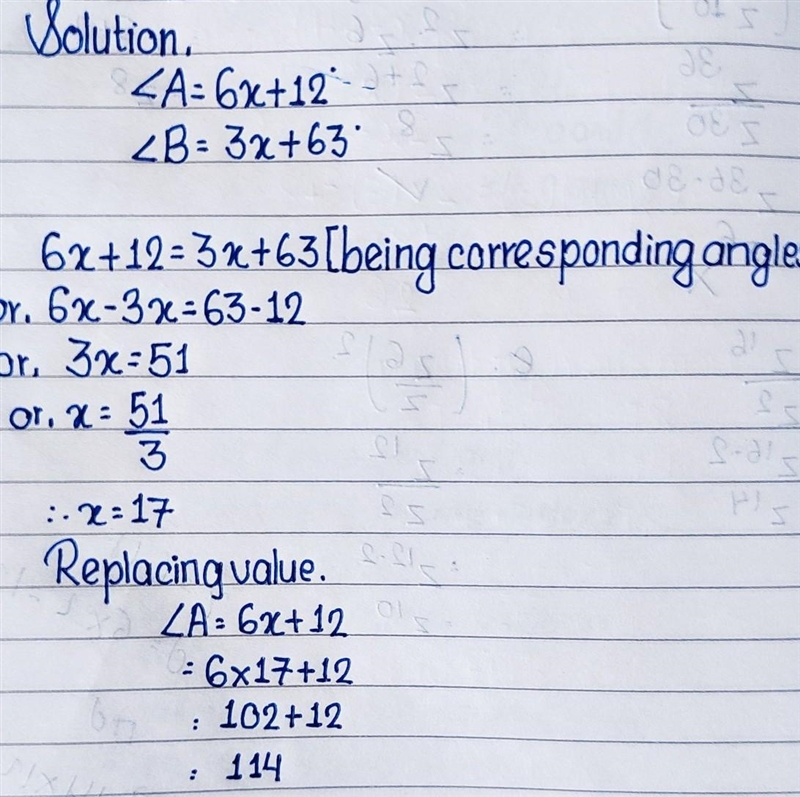 Solution.
∠A = 6x+12°
∠B = 3x+63°
6x+12 = 3x+63 [being corresponding angle
or. 6x-3x = 63-12
or. 3x = 51
or. x = 51/3
∴ x = 17
Replacing value.
∠A = 6x+12
= 6×17+12
: 102+12
: 114